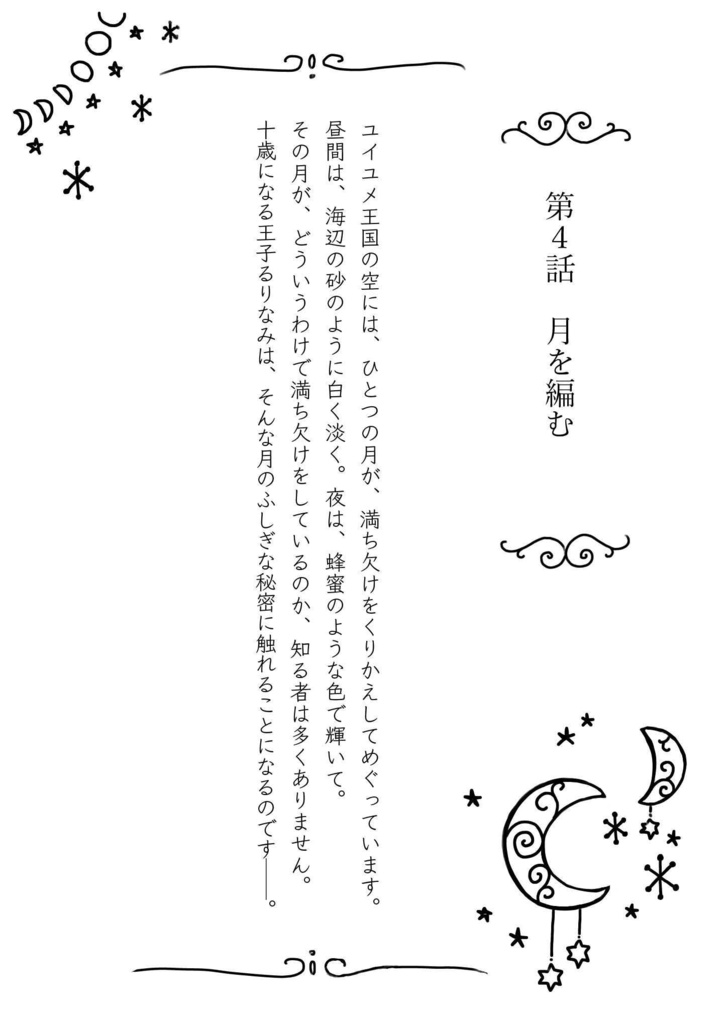 第4話　月を編む
ユイユメ王国の空には、ひとつの月が、満ち欠けをくりかえしてめぐっています。
昼間は、海辺の砂のように白く淡く。夜は、蜂蜜のような色で輝いて。
その月が、どういうわけで満ち欠けをしているのか、知る者は多くありません。
十歳になる王子るりなみは、そんな月のふしぎな秘密に触れることになるのです――。